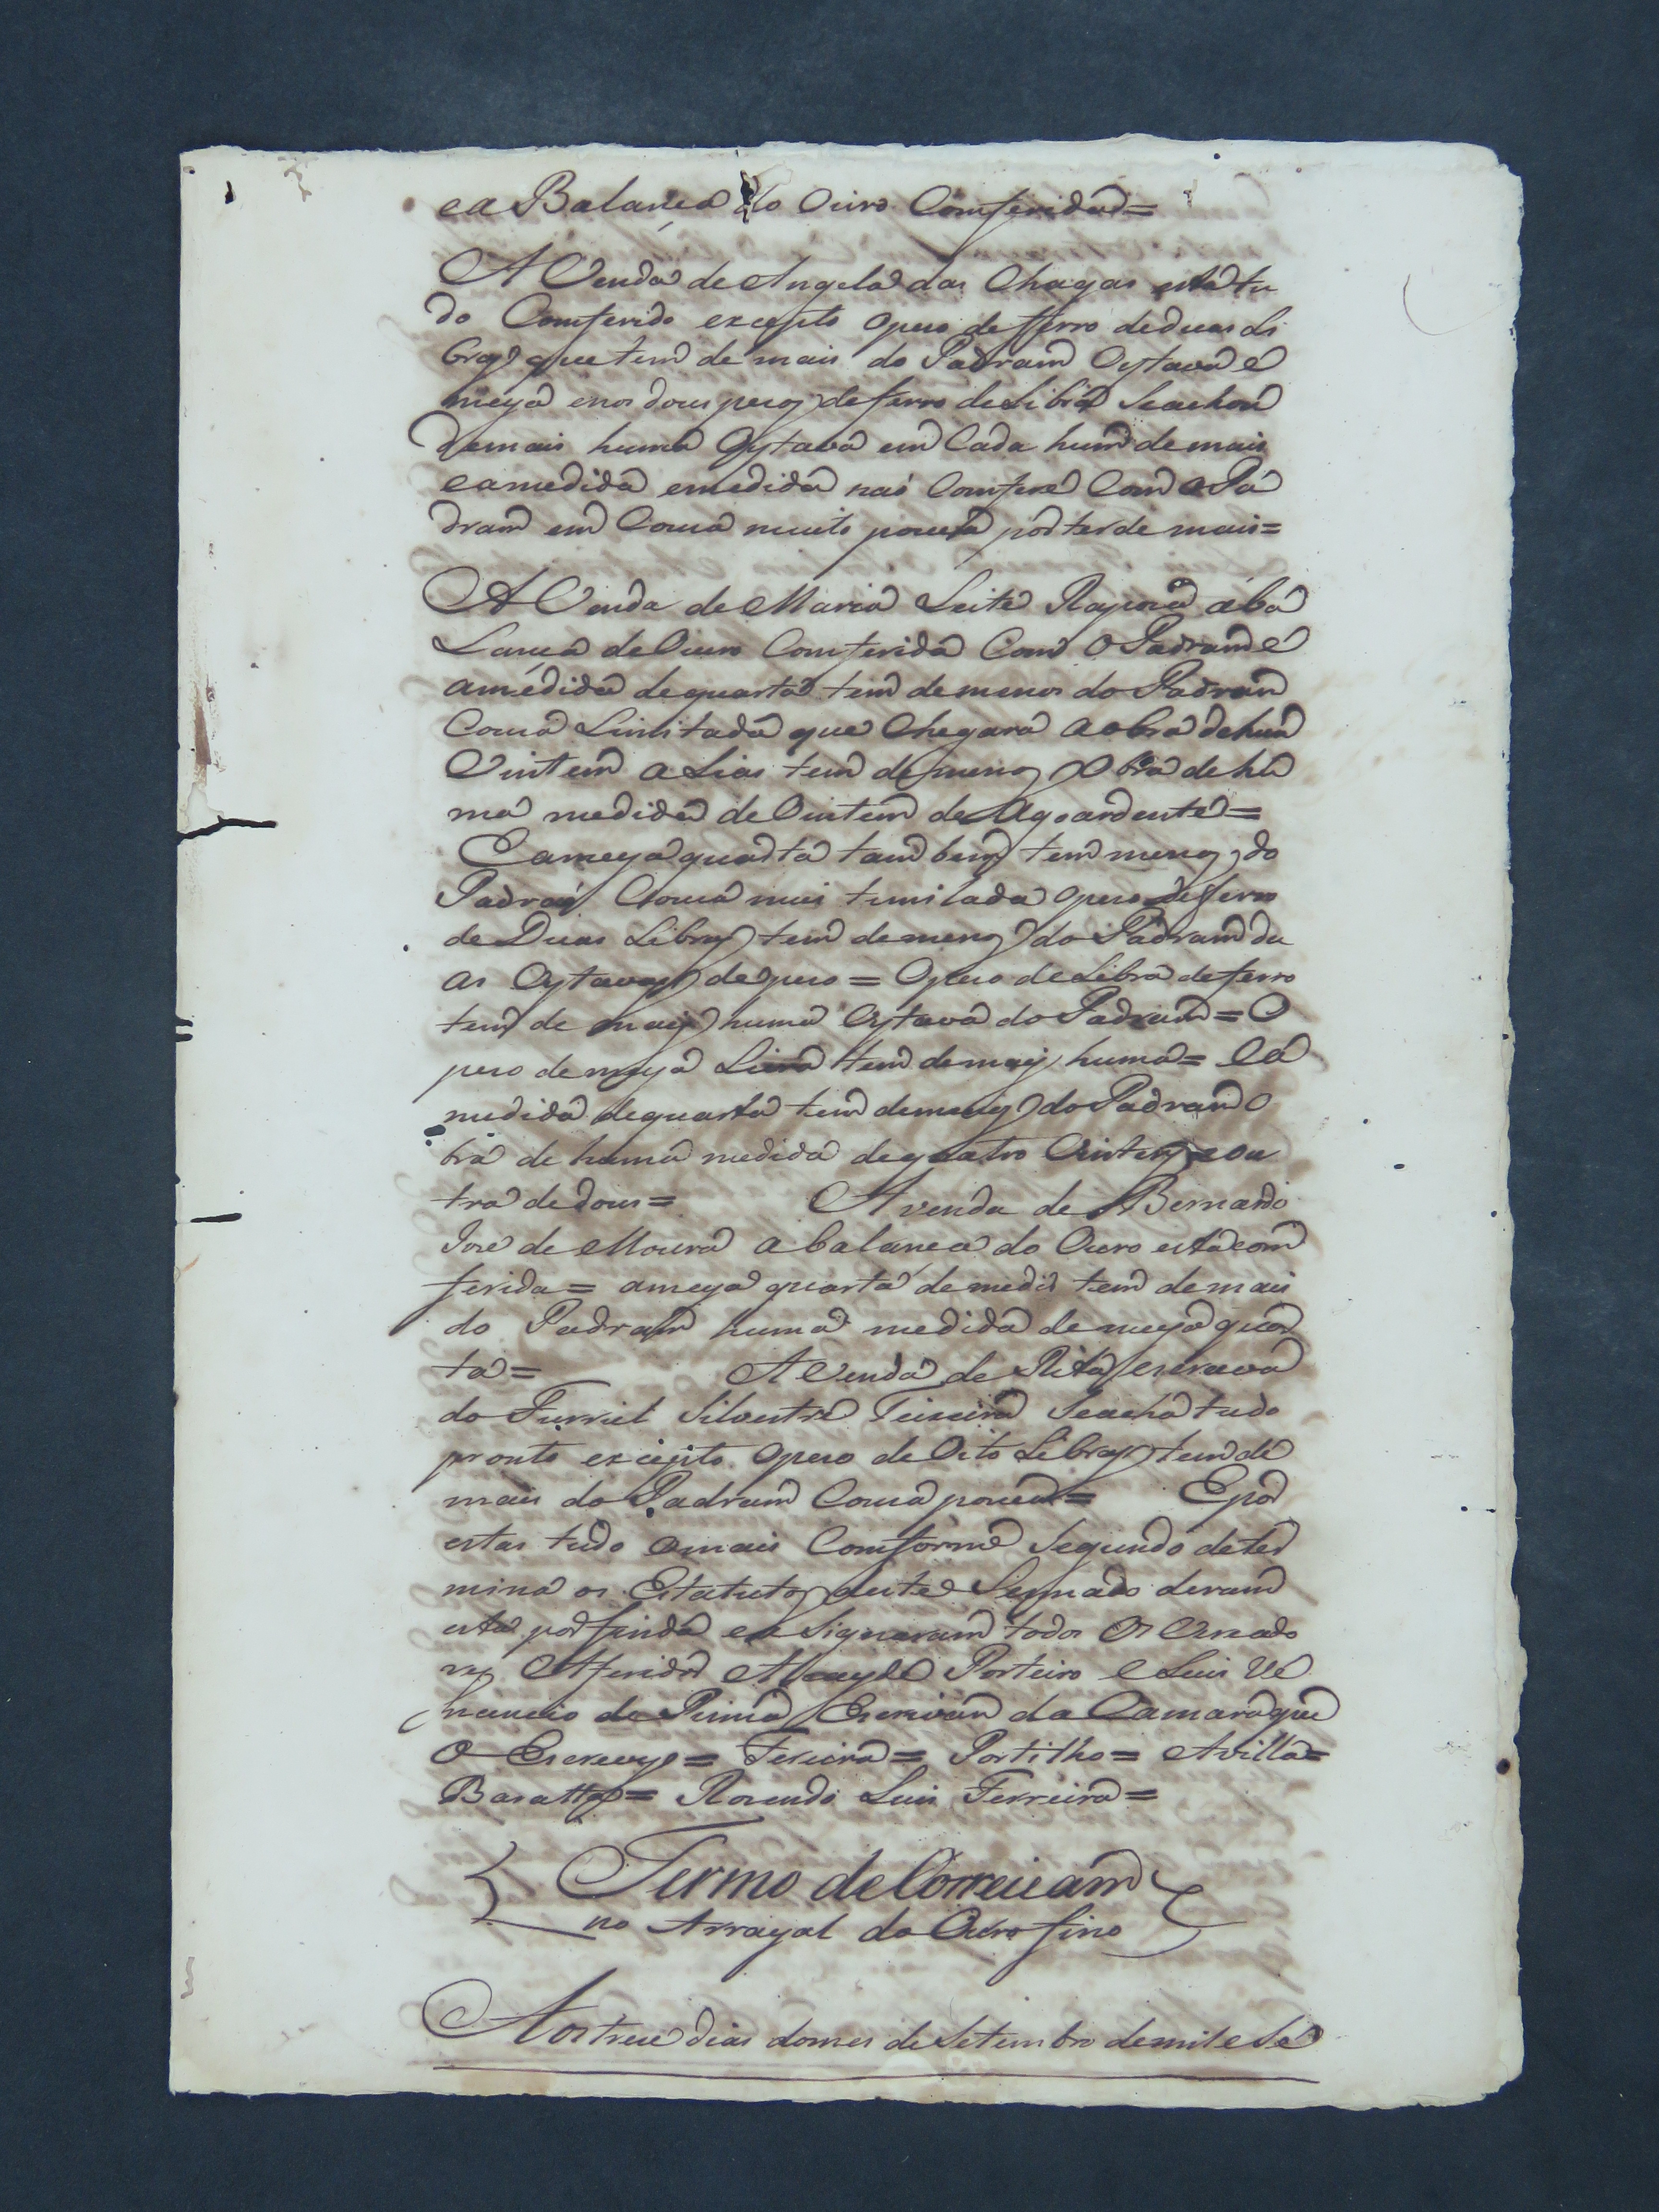 ea Balança do Ouro Comferida=
A Venda de Angela das Chagas esta tu
do Comferido excepto opeso de fferro deduas Li
bras que tem de mais do Padram Oytava e
meya enos dous pezos de ferro de Libra Seachou
demais huma Oytava em Cada hum de mais
eamedida emedida naó Comfere Com o Pa
dram em Couza muito pouca por ter de mais=
A Venda de Maria Leite Rapoza aba
Lança de Ouro Comferida Com o Padram e
amedida dequarta tem demenos do Padram
Couza Limitada que Chegara aobra dehum
Vintem a Lias tem demenos Obra de hu
ma medida de Vintem de Agoardente=
Eameya quarta tambem tem menos do
Padraó Couza mui temilada opeso de fferro
de Duas Libras tem demenos do Padram du
as Oytavas depeso= Opeso de Libra de ferro
tem de mais huma Oytava do Padram= O
peso demeya Livra tem demais huma= Ea
medida dequarta tem demais do Padram O
bra de huma medida dequatro Vintens eou
tra de dous= A venda de Bernardo
Jose de Moura abalança do Ouro esta com
ferida= ameya quarta de medir tem demais
do Padram huma medida demeya quar
ta= A Venda de Rita escrava
do Furriel Silvestre Teixeira Seacha tudo
pronto excepto Opeso de Oito Libras tem de
mais do Padram Couza pouca= Epor
estar tudo omais Comforme Segundo deter
mina os Estatutos deste Sennado deram
esta por finda ea Signaram todos Os Veread
res Aferidor Alcayde Porteiro e Luis Ve
nancio de Pinna Escrivam da Camara que
O Escrevy= Pereira= Portilho= Avilla=
Baratta= Rozendo Luis Ferreira=
Termo de Correicam
no Arrayal do Ouro fino
Aos treze dias domes de Setembro demil e Se